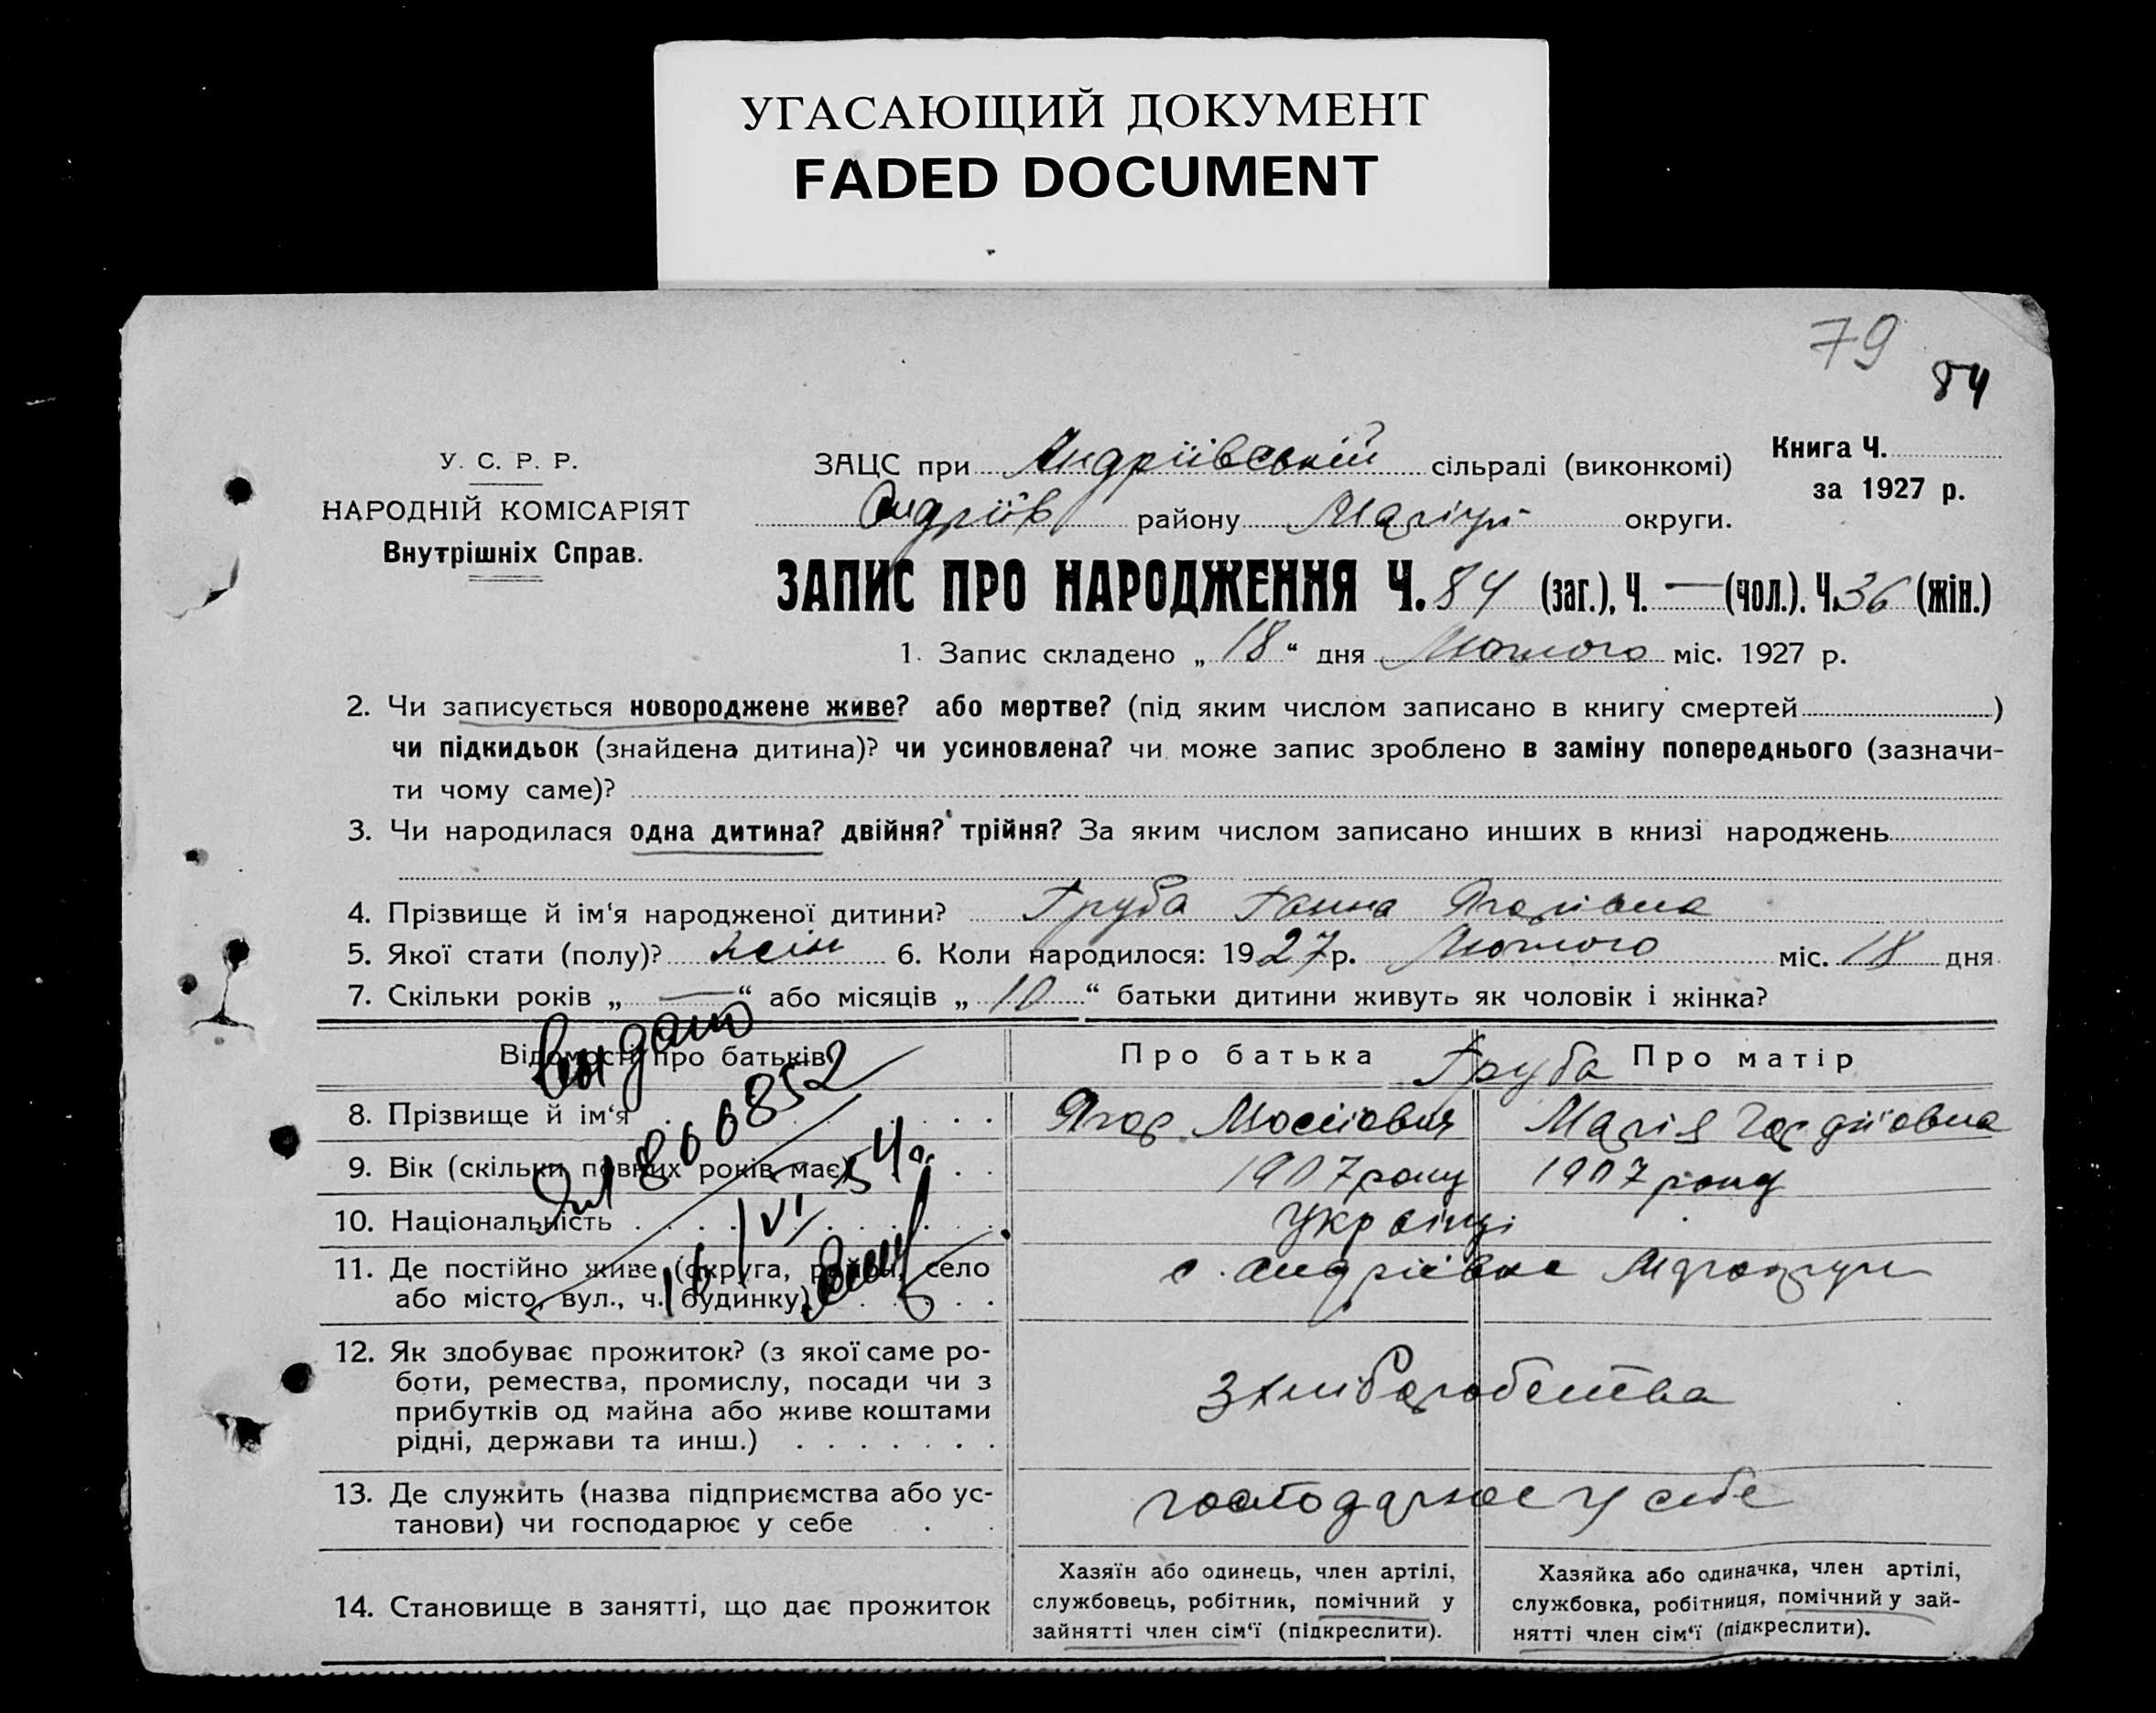 УГАСАЮЩИЙ ДОКУМЕНТ
FADED DOCUMENT
79
84
У. С. Р. Р.
НАРОДНІЙ КОМІСАРІЯТ
Внутрішніх Справ.
ЗАЦС при Андріївській сільраді (виконкомі)
Андріїв району Маріуп округи.
Книга Ч.
за 1927 р.
ЗАПИС ПРО НАРОДЖЕННЯ Ч. 84 (заг.), Ч. — (чол.). Ч. 36 (жін.)
1. Запис складено „18“ дня Лютого міс. 1927 р.
2. Чи записується новороджене живе? або мертве? (під яким числом записано в книгу смертей )
чи підкидьок (знайдена дитина)? чи усиновлена? чи може запис зроблено в заміну попереднього (зазначи-
ти чому саме)?
3. Чи народилася одна дитина? двійня? трійня? За яким числом записано инших в книзі народжень
4. Прізвище й ім‘я народженої дитини? Груба Ганна
5. Якої стати (полу)? жін 6. Коли народилося: 1927 р. Лютого міс. 18 дня
7. Скільки років „—“ або місяців „10“ батьки дитини живуть як чоловік і жінка?
Відомості про батьків Про батька Груба Про матір
8. Прізвище й ім‘я Марія Гордіївна
9. Вік (скільки повних років має) 1907 року 1907 року
10. Національність Українці
11. Де постійно живе (округа, район, село с. Андріївка
або місто, вул., ч. будинку)
Видано
800852
12. Як здобуває прожиток? (з якої саме ро-
боти, ремества, промислу, посади чи з
прибутків од майна або живе коштами
рідні, держави та инш.)
з хліборобства
13. Де служить (назва підприємства або ус-
танови) чи господарює у себе
господарює у себе
14. Становище в занятті, що дає прожиток
Хазяїн або одинець, член артілі,
службовець, робітник, помічний у
зайнятті член сім‘ї (підкреслити).
Хазяйка або одиначка, член артілі,
службовка, робітниця, помічний у зай-
нятті член сім‘ї (підкреслити).